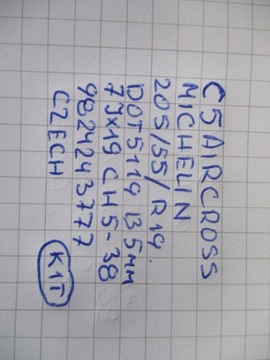 C5 AIRCROSS
MICHELIN
205/55/R19
DOT5119 B5MM
7JX19 CH5-38
9824243777
CZECH K1T